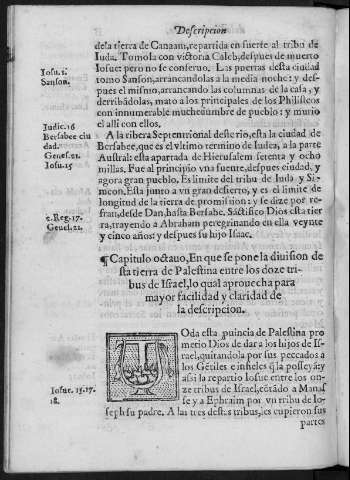 Descripcion
dela tierra de Canaam, repartida en suerte al tribu de
Iuda. Tomola con victoria Caleb, despues de muerto
Iosue: pero no se conseruo. Las puertas desta ciudad
tomo Sanson, arrancandolas a la media noche: y des-
pues el mismo, arrancando las columnas de la casa, y
derribādolas, mato a los principales de los Philisteos
con innumerable muchedumbre de pueblo: y murio
el alli con ellos.
Iosu. 1.
Sanson.
A la ribera Septentrional deste rio, esta la ciudad de
Bersabee, que es el vltimo termino de Iudea, a la parte
Austral: esta apartada de Hierusalem setenta y ocho
millas. Fue al principio vna fuente, despues ciudad, y
agora gran pueblo. Es limite del tribu de Iuda y Si-
meon. Esta junto a vn gran desierto, y es el limite de
longitud de la tierra de promission: y se dize por re-
fran, desde Dan, hasta Bersabe. Sāctifico Dios esta tier
ra, trayendo a Abraham peregrinando en ella veynte
y cinco años: y despues su hijo Isaac.
Iudic. 16
Bersabee ciu
dad.
Genes. 21.
Iosu. 15
2. Reg. 17.
Genes. 21.
¶ Capitulo octauo, En que se pone la diuision de
sta tierra de Palestina entre los doze tri-
bus de Israel, lo qual aprouecha para
mayor facilidad y claridad de
la descripcion.
Toda esta puincia de Palestina pro
metio Dios de dar a los hijos de Is-
rael, quitandola por sus peccados a
los Gētiles e infieles q̃ la posseyā: y
assi la repartio Iosue entre los on-
ze tribus de Israel, cōtādo a Manas
se y a Ephraim por vn tribu de Io-
seph su padre. A las tres destos tribus, les cupieron sus
Iosue. 15. 17.
18.
partes